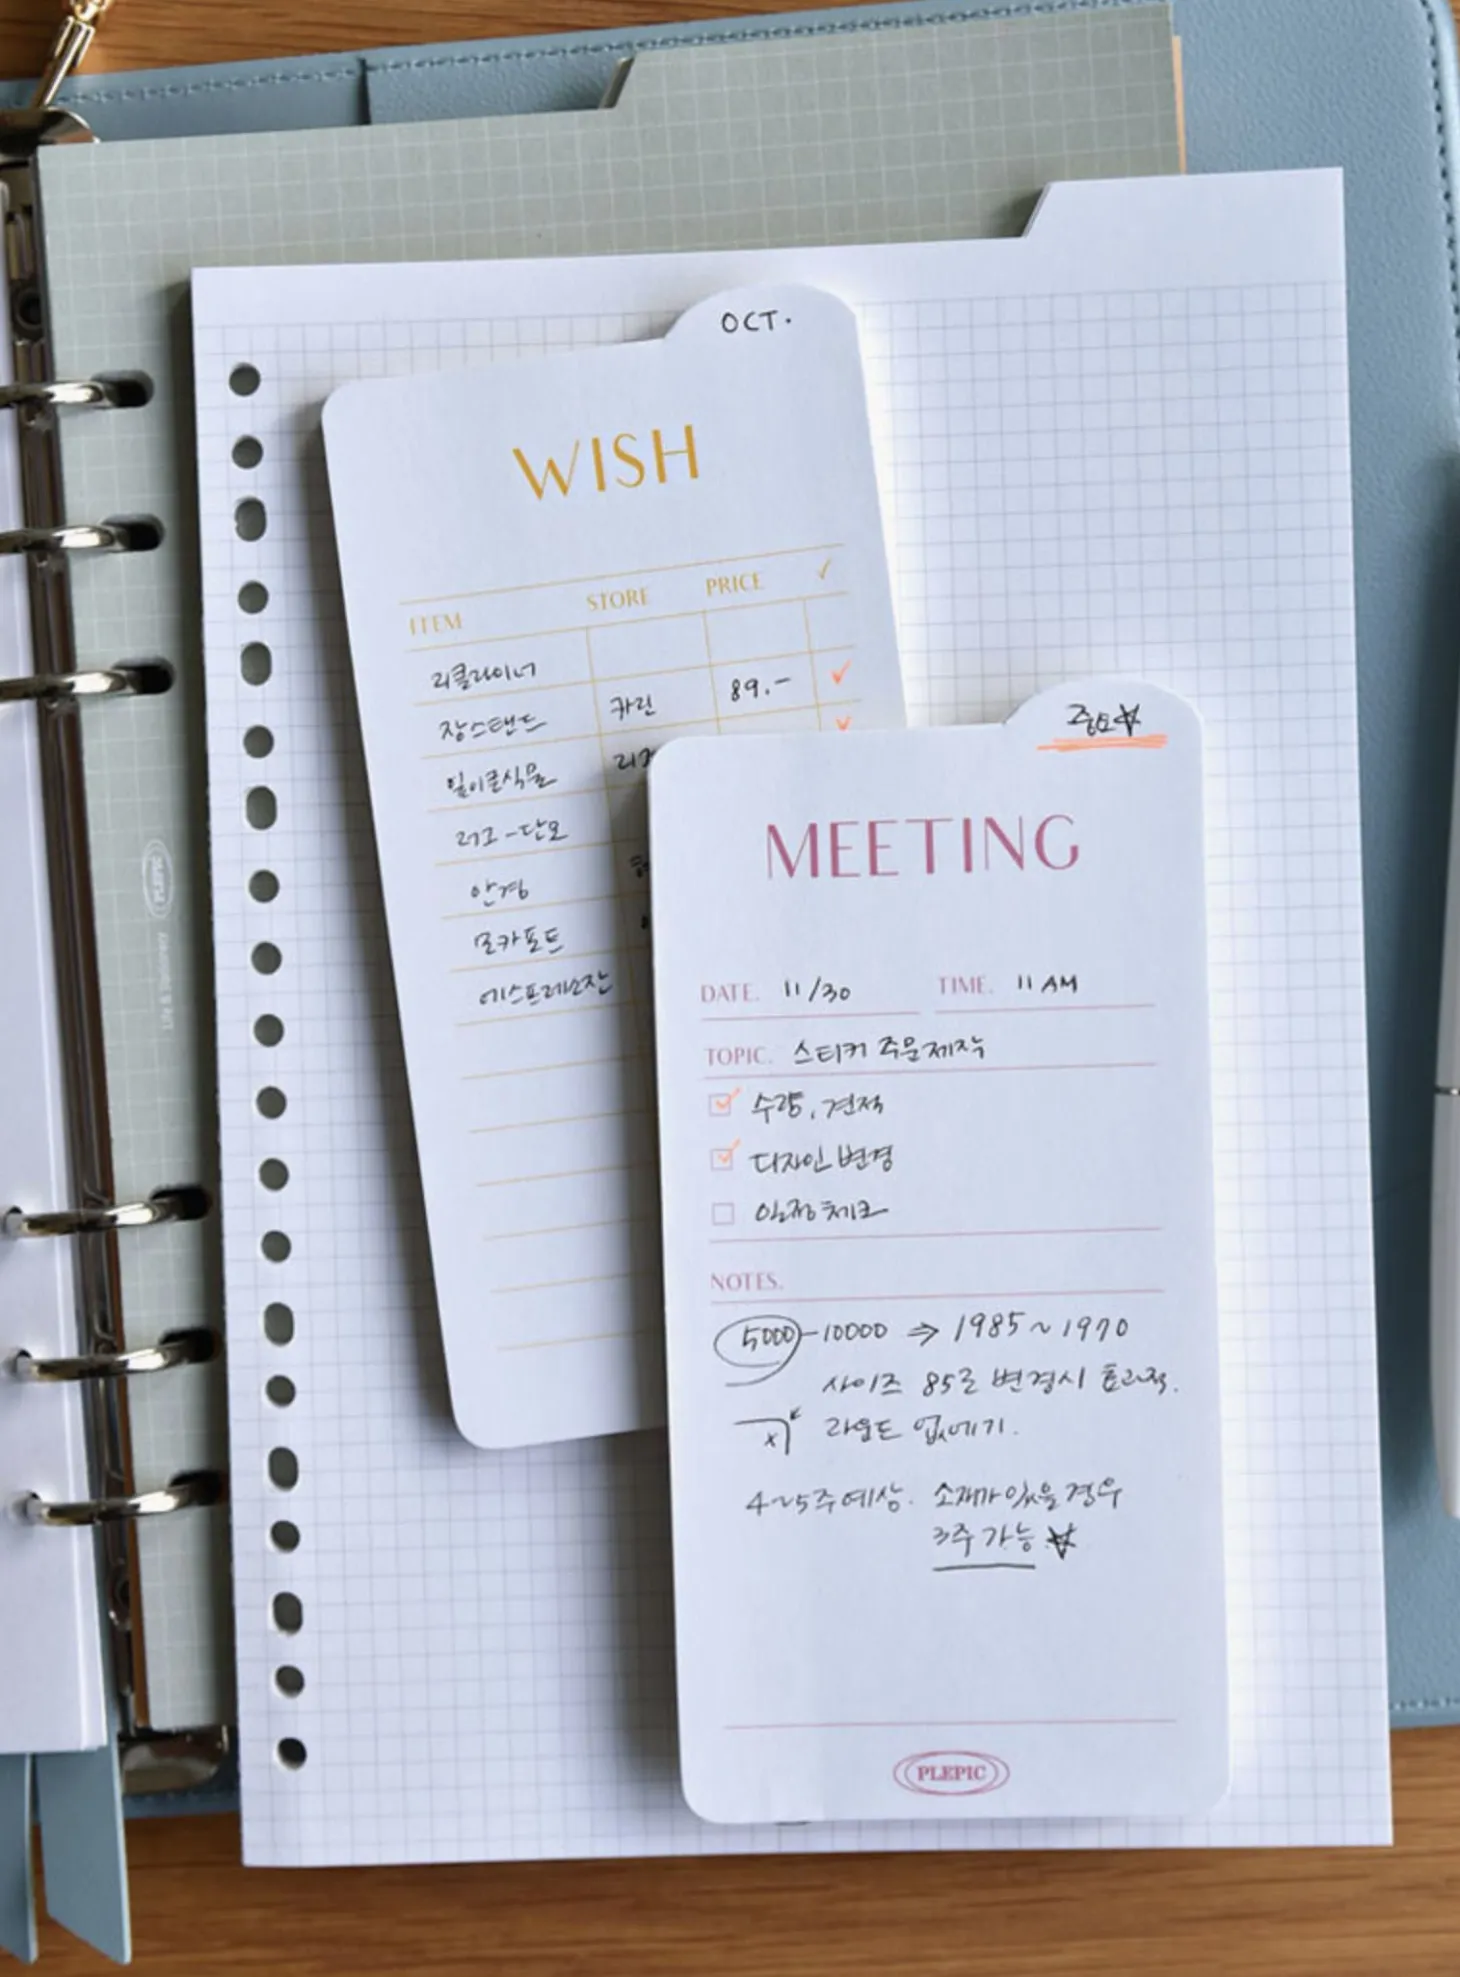 OCT.
WISH
ITEM STORE PRICE ✓
리클라이너
장스탠드 카린 89.-
잎이큰식물
러그-단모
안경
모카포트
에스프레소잔
중요☆
MEETING
DATE. 11/30 TIME. 11 AM
TOPIC. 스티커 주문제작
수량, 견적
디자인 변경
일정체크
NOTES.
5000-10000 ⇒ 1985~1970
사이즈 85로 변경시 효과적.
x 라운드 없애기.
4~5주예상. 소재가 있을 경우
3주 가능 ☆
PLEPIC
PLEPIC